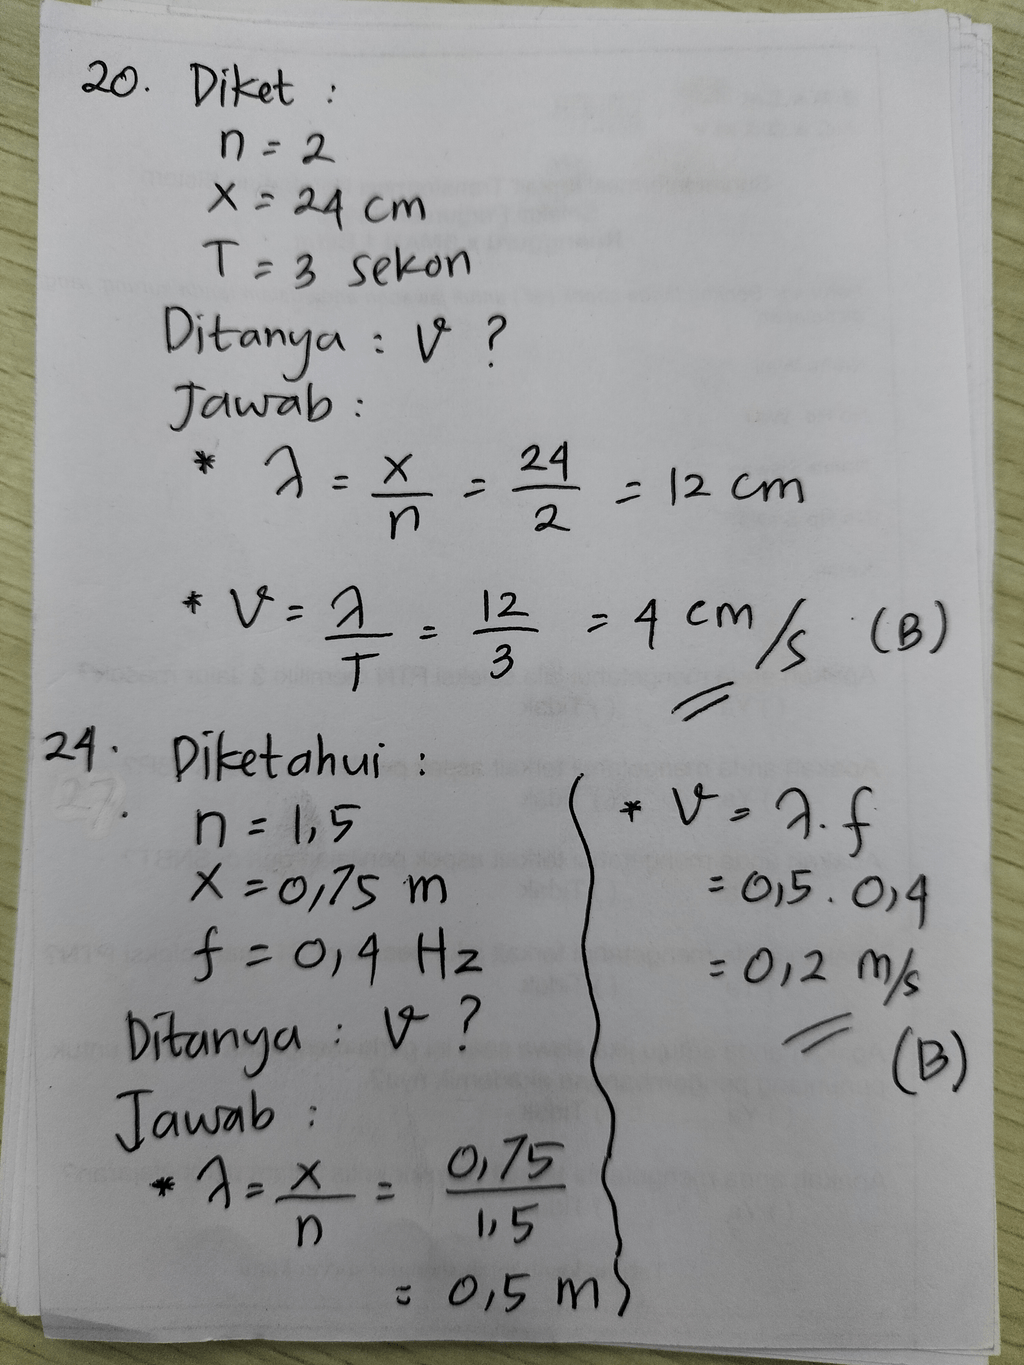 20. Diket :
n = 2
x = 24 cm
T = 3 sekon
Ditanya : v ?
Jawab :
* λ = x/n = 24/2 = 12 cm
* v = λ/T = 12/3 = 4 cm/s (B)
24. Diketahui :
n = 1,5
x = 0,75 m
f = 0,4 Hz
Ditanya : v ?
Jawab :
* λ = x/n = 0,75/1,5
= 0,5 m
* v = λ.f
= 0,5 . 0,4
= 0,2 m/s
(B)